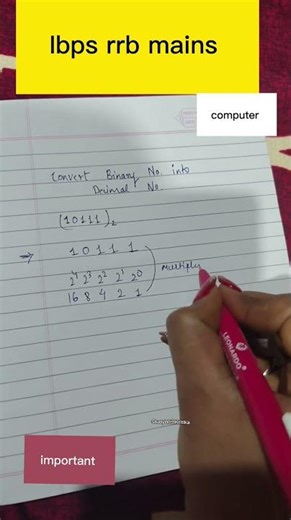 Ibps rrb mains
computer
Convert Binary No. into
Decimal No.
(10111)₂
⇒ 1 0 1 1 1
2⁴ 2³ 2² 2¹ 2⁰
16 8 4 2 1
multiply
LEONARDO
important